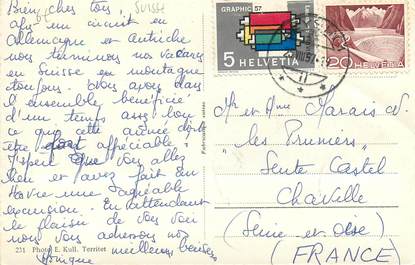 Suisse
Bien chers tous,
après un circuit en
Allemagne et Autriche
nous terminons nos vacances
en Suisse en montagne
toujours. Nous avons dans
l'ensemble bénéficié
d'un temps assez bon
ce qui cette année doit
être appréciable.
J'espère que vous allez
bien et avez fait en
Havre une agréable
excursion. En attendant
le plaisir de vous voir
nous vous adressons nos
meilleurs baisers
Monique
231 Photo E. Kull. Territet
GRAPHIC 57
5 HELVETIA
20 HELVETIA
Mr et Mme Marais
"les Pruniers"
Sente Castel
Chaville
(Seine-et-Oise)
(FRANCE)